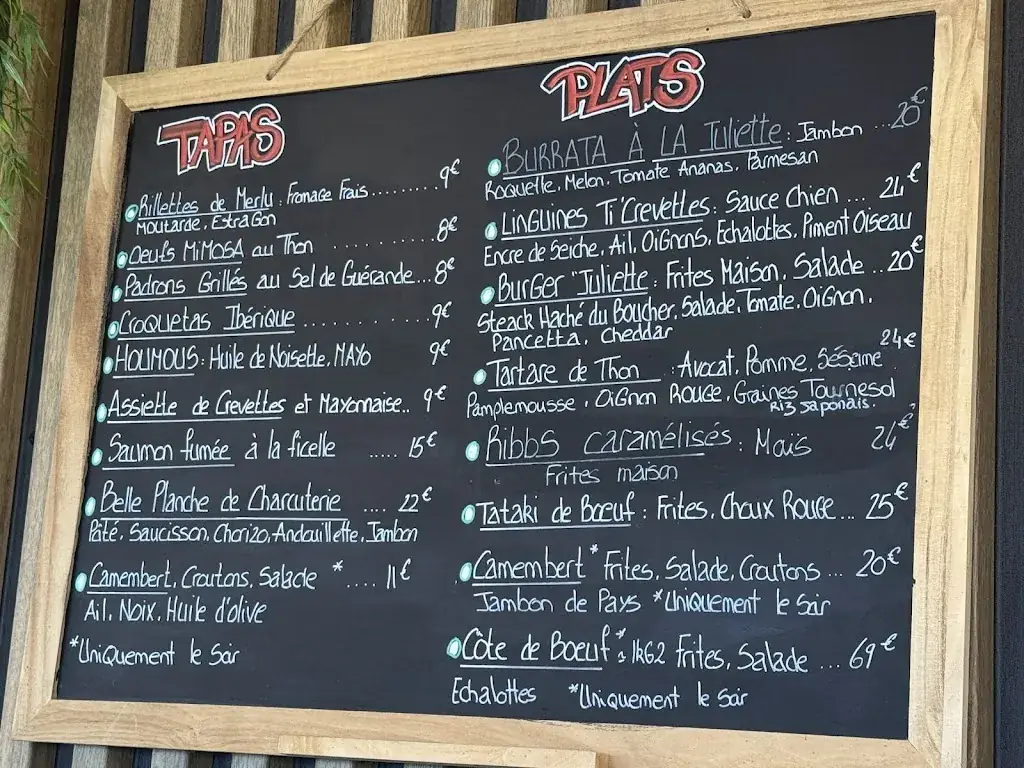 TAPAS
Rillettes de Merlu : Fromage Frais ........ 9€
Moutarde, Estragon
Oeufs MIMOSA au Thon .......... 8€
Padrons Grillés au Sel de Guérande...8€
Croquetas Ibérique .......... 9€
HOUMOUS : Huile de Noisette, MAYO 9€
Assiette de Crevettes et Mayonnaise.. 9€
Saumon fumée à la ficelle ..... 15€
Belle Planche de Charcuterie .... 22€
Pâté, Saucisson, Chorizo, Andouillette, Jambon
Camembert, Croutons, Salade * .... 11€
Ail, Noix, Huile d'olive
*Uniquement le Soir
PLATS
BURRATA À LA Juliette : Jambon ... 20€
Roquette, Melon, Tomate Ananas, Parmesan
LINGUINES Ti'Crevettes : Sauce Chien ... 24€
Encre de Seiche, Ail, Oignons, Echalottes, Piment Oiseau
BurGer "Juliette : Frites Maison, Salade .. 20€
Steack Haché du Boucher, Salade, Tomate, Oignon,
Pancetta, Cheddar
Tartare de Thon : Avocat, Pomme, Sésame 24€
Pamplemousse, Oignon ROUGE, Graines Tournesol
Riz Japonais.
Ribbs caramélisés : Maïs 24€
Frites maison
Tataki de Bœuf : Frites, Choux Rouge ... 25€
Camembert * Frites, Salade, Croutons ... 20€
Jambon de Pays *Uniquement le Soir
Côte de Boeuf * ± 1KG2 Frites, Salade ... 69€
Echalottes *Uniquement le Soir